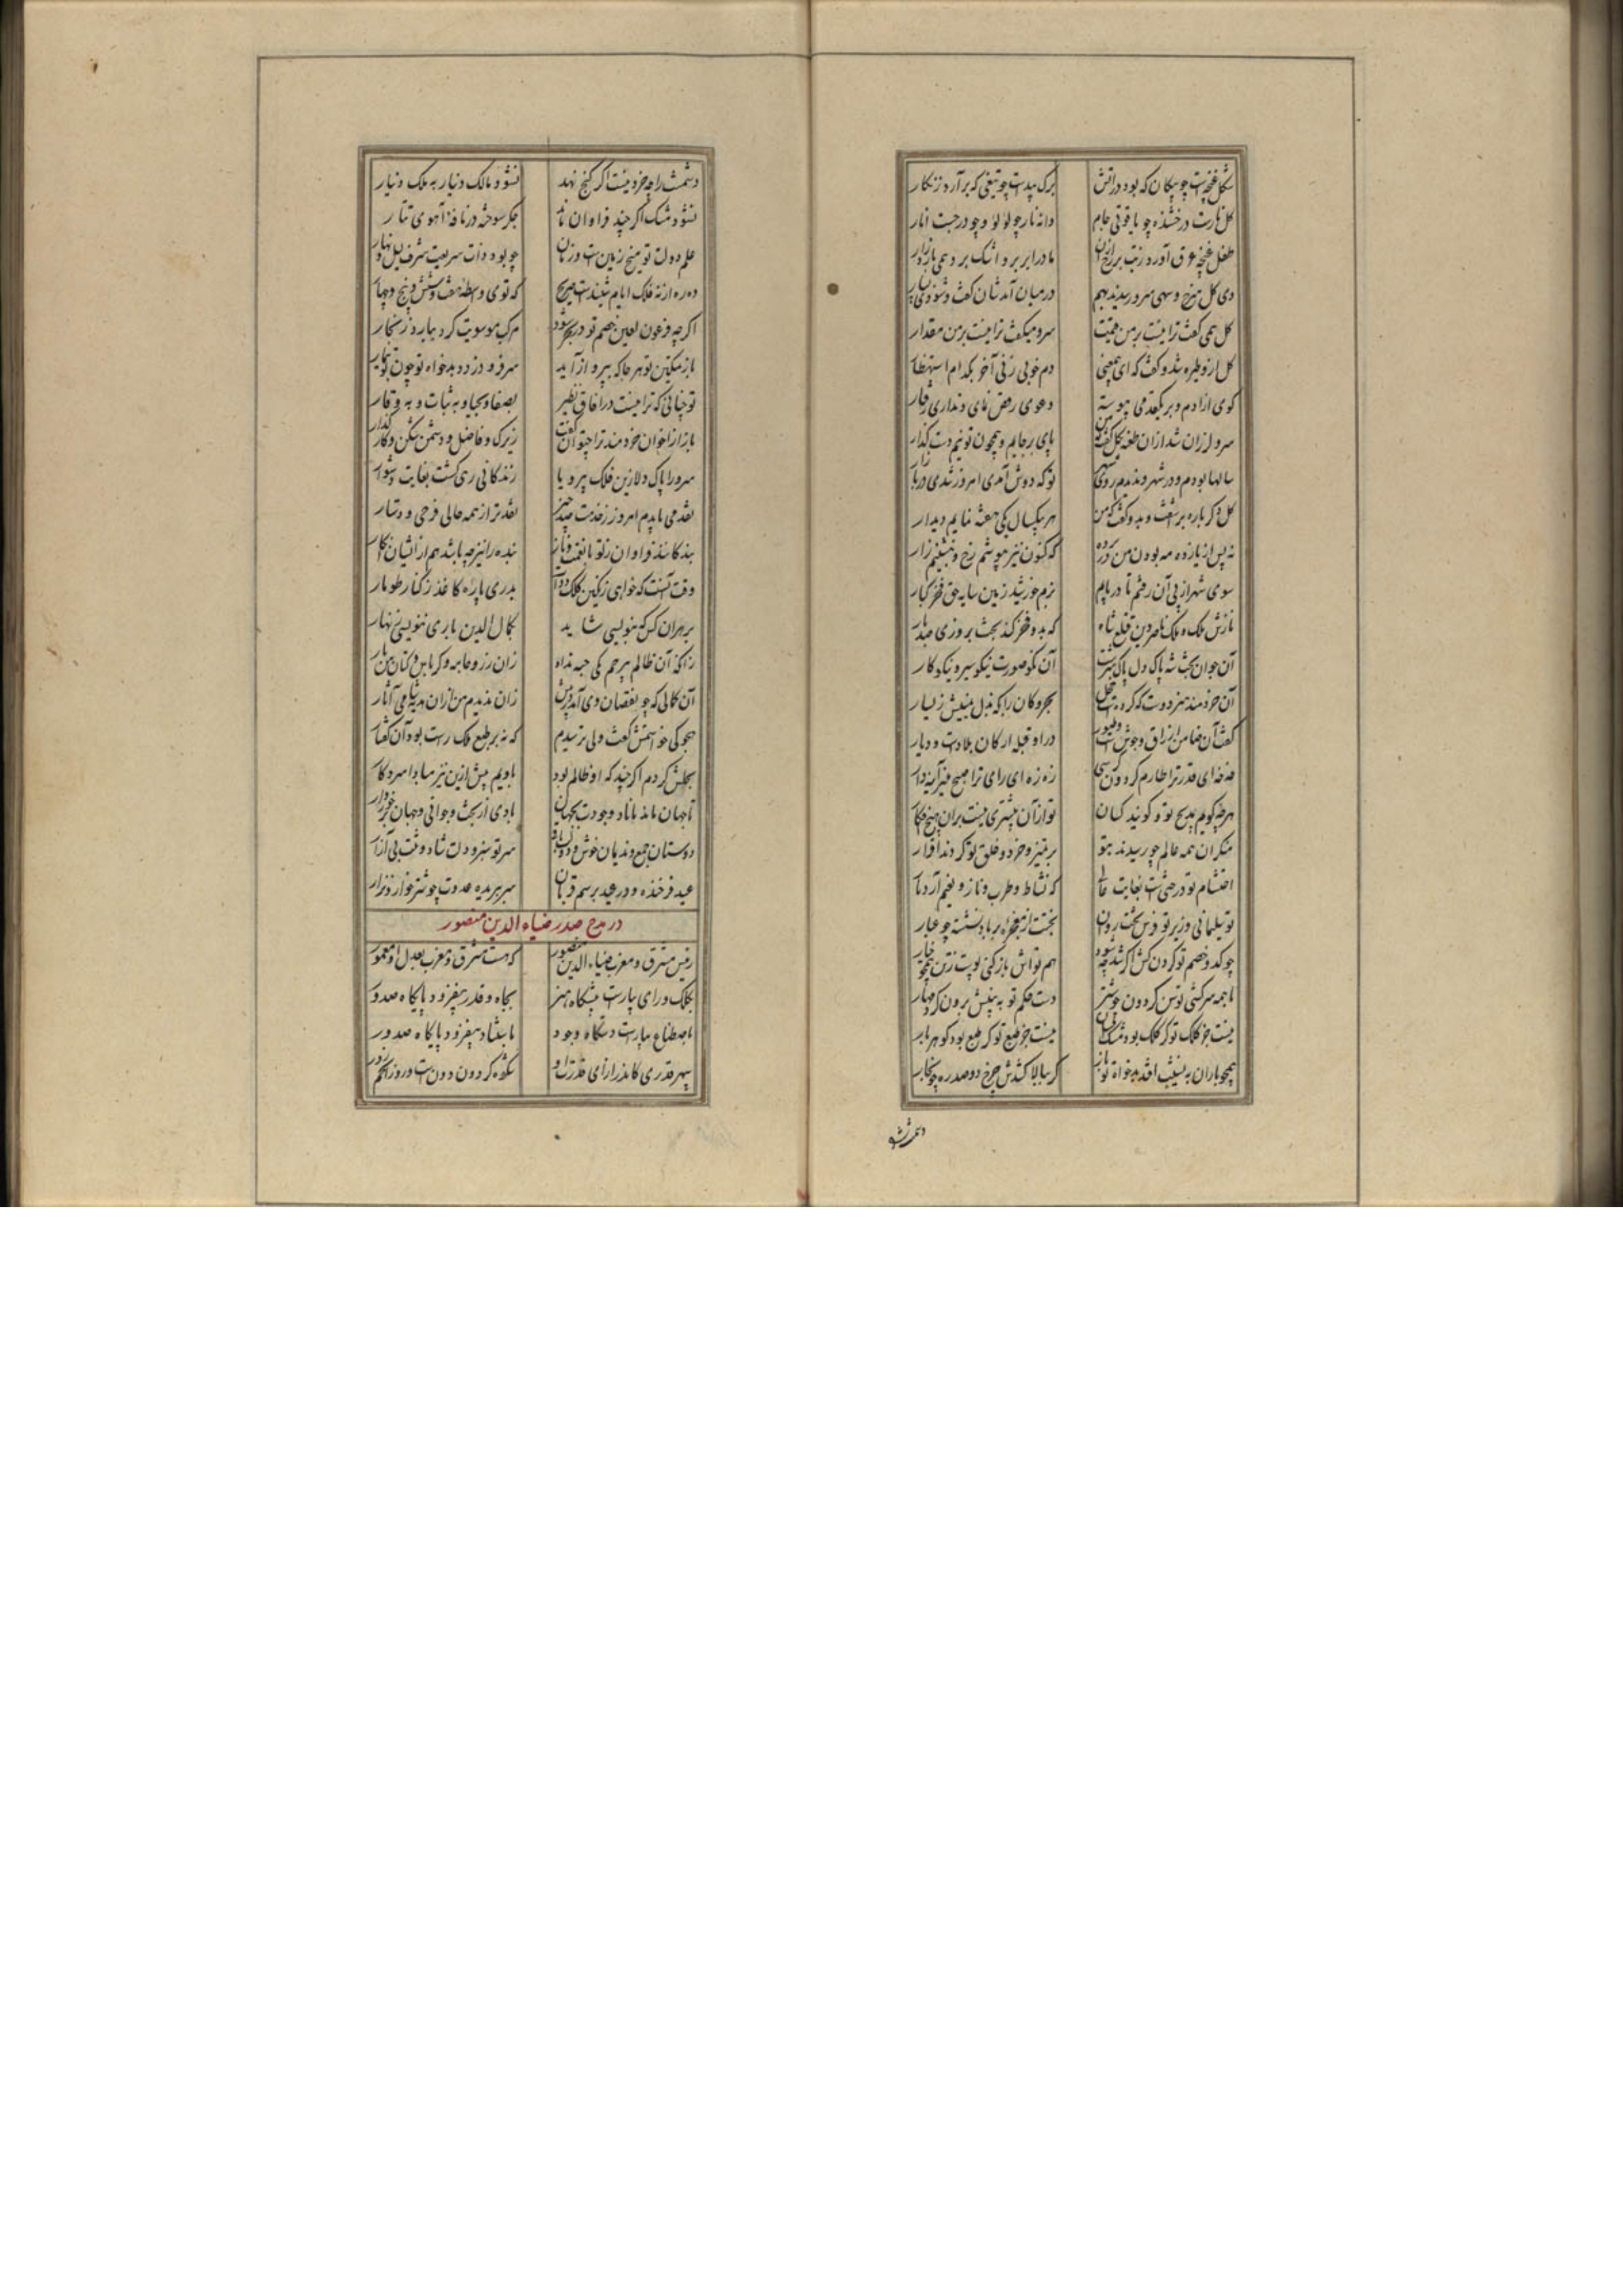 شکل غنچه‌ست چو پیکان که بود در آتش برک بیدست چو تیغی که برآرد زنکار
کل نارست درخشنده چو یاقوتی جام دانه نار چو لؤلؤ و چو درجست انار
طفل غنچه عرق آورد ز تب برآن مادر ابر برو اشک برد همی بارد زار
دی کل سرخ و سهی سرو رسیدند بهم در میان آمدشان کفت و شنودی
کل همی کفت ترا نیست بر من قیمت سرو میکفت ترا نیست بر من مقدار
کل ازو طیره شد و کفت که ای بیمعنی دم خوبی زنی آخر بکدام استظهار
کوی آزادم و بر یکقدمی پیوسته دعوی رقص نمای و نداری رفتار
سرو لرزان شد ازان طعنه بکل کفت پای برجایم و همچون تو نیم دست کذار
سالها بودم و در شهر ندیدم روی تو که دوش آمدی امروز شدی در بازار
کل دکر باره برآشفت و بدو کفت که من هر بیکسال یکی هفته نمایم دیدار
نه پس از یازده مه بودن من در پرده که کنون نیز بپوشم رخ و بنشینم زار
سوی شهر از پی آن رفتم تا دریابم بزم خورشید زمین سایه حق فخر کبار
نازش ملک و ملک ناصر دین قتلغ شاه که بدو فخر کند بخت بروزی صدبار
آن جوان بخت شه پاک دل پاک سرشت آن نکو صورت نیکو سیر و نیکو کار
آن خردمند هنر دوست که کرد بحر و کان را که بذل یمینش ز یسار
کفت آن ضامن ارزاق وحوش و طیور در او قبله ارکان بلادست و دیار
ای قدر ترا طارم کردون کرسی زه زه ای رای ترا صبح منیر آینه دار
هرچه کویم بمدیح تو و کویند کسان تو از آن بیشتری نیست بران هیچ
منکران همه عالم چو رسیدند بتو بر تمیز و خرد و خلق تو کردند اقرار
احتشام تو درختیست بغایت عالی که نشاط و طرب و ناز و نعیم آرد بار
تو سلیمانی و زیر تو فرس تخت روان
چو کدو خصم تو کردن کش اکر شد چه شود هم تواش باز کنی پوست ز تن همچو خیار
با همه سرکشی توسن کردون چو شتر دست حکم تو به بینیش برون کرد مهار
نیست جز کلک تو کر کلک بود مشک فشان نیست جز طبع تو کر طبع بود کوهر بار
همچو باران به نشیب افتد بدخواه تو باز کر ببالا کشدش چرخ دوصد ره چو بخار
دشمنت شو
دشمنت را چه خرد نیست اکر کنج نهد نشود مالک دینار به ملک دینار
نشود مشک اکر چند فراوان ماند جکر سوخته در نافه آهوی تتار
علم دولت تو میخ زمین ست و زمان چو بود ذات شریفت شرف لیل و نهار
اکرچه فرعون لعین خصم تو در بحر شود مرکب موسویت کرد برآرد ز بحار
باز تمکین تو هرجا که بپرواز آید سر فرو دزدد بدخواه تو چون بوتیمار
تو چنانی که ترا نیست در آفاق نظیر بصفا و بحیا و به ثبات و به وقار
باز از اخوان خردمند ترا چتوان کفت زیرک و فاضل و دشمن شکن و کار کذار
سرورا پاک دلا زین فلک بی پر و پا زندکانی رهی کشت بغایت دشوار
نقد می بایدم امروز ز خدمت صد چیز نقدتر از همه حالی فرجی و دستار
بندکانند فراوان ز تو با نعمت و ناز بنده را نیز چه باشد هم ازایشان انکار
وقت آنست که خواهی ز یکی کلک و دوات بدری پاره کاغذ ز کنار طومار
بر هر آن کس که نویسی شاید بکمال الدین باری ننویسی زنهار
زانکه آن ظالم بیرحم یکی حبه نداد زان زر و جامه و کرباس و کتان من بار
آن کمالی که چو نقصان وی آمد درپیش زان ندیدم من ازان هیچ آثار
هجوکی خواستمش کفت ولی ترسیدم که نه بر طبع ملک راست بود آن کفتار
بحلش کردم اکر چند که او ظالم بود بادیم پیش ازین نیز مبادا سر و کار
تا جهان ماند ماناد وجودت بجهان بادی از بخت و جوانی و جهان برخوردار
دوستان جمع و ندیمان خوش و دولت باقی سر تو سبز و دلت شاد و تنت بی آزار
عید فرخنده و در عید برسم قربان سر بریده عدوت چو شتر خوار و نزار
در مدح صدر ضیاء الدین منصور
رئیس مشرق و مغرب ضیاء الدین منصور که هست مشرق و مغرب بعدل او معمور
بکلک و رای بیاراست پیشکاه هنر بجاه و قدر بیفزود پایکاه صدور
باصطناع بیاراست دستکاه وجود باستناد بیفزود پایکاه صدور
سپهر قدری کاندر ازای قدرت او شکوه کردون دونست و روز انجم زور